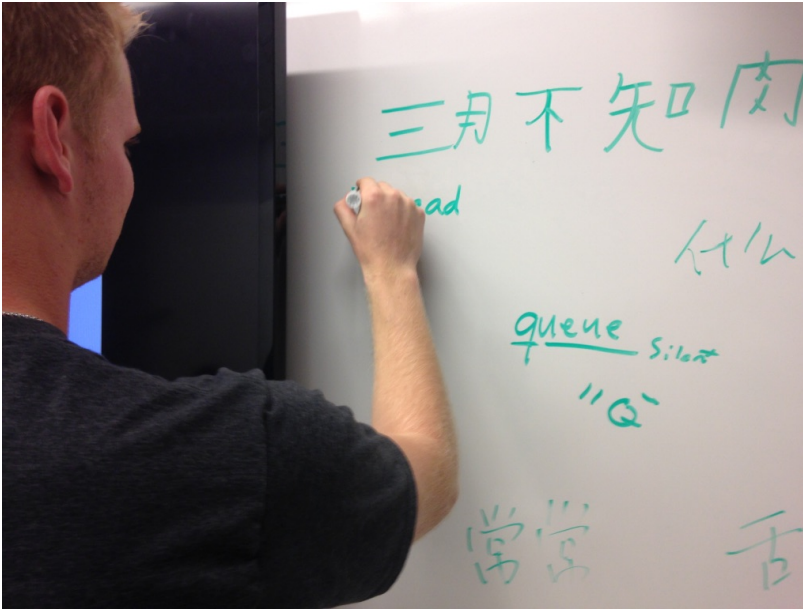 三月不知肉
ead
什么
queue silent
"Q"
常常 舌